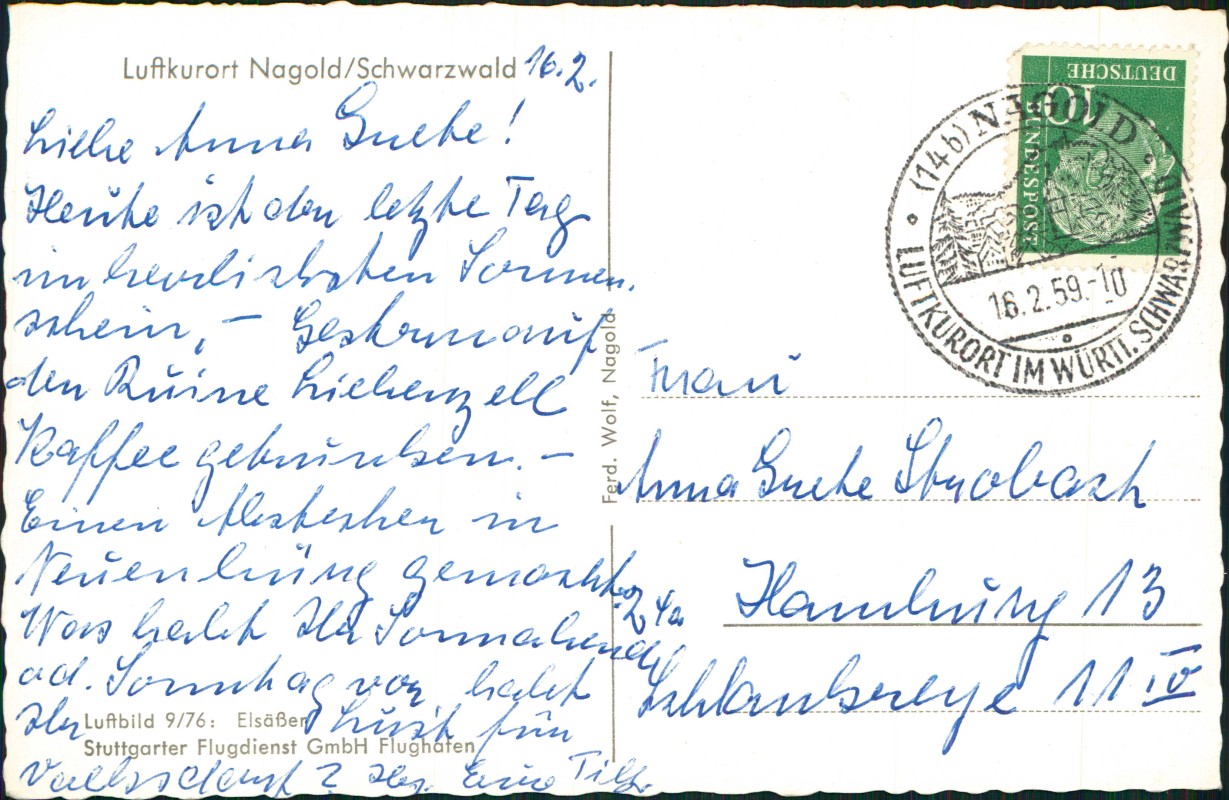 Luftkurort Nagold/Schwarzwald 16.2.
Liebe Anna Grete!
Heute ist der letzte Tag
im herrlichsten Sonnen-
schein, – Gestern auf
der Ruine Liebenzell
Kaffee getrunken. –
Einen Abstecher in
Neuenbürg gemacht.
Was habt Ihr Sonnabend
od. Sonntag vor, habt
Ihr Lust für
Volksdorf?
Luftbild 9/76: Elsäßer
Stuttgarter Flugdienst GmbH Flughafen
Ferd. Wolf, Nagold
DEUTSCHE
BUNDESPOST
10
(14b) NAGOLD
16.2.59.-10
LUFTKURORT IM WÜRTT. SCHWARZWALD
Frau
Anna Grete Strobach
24a Hamburg 13
Schlankreye 11 IV